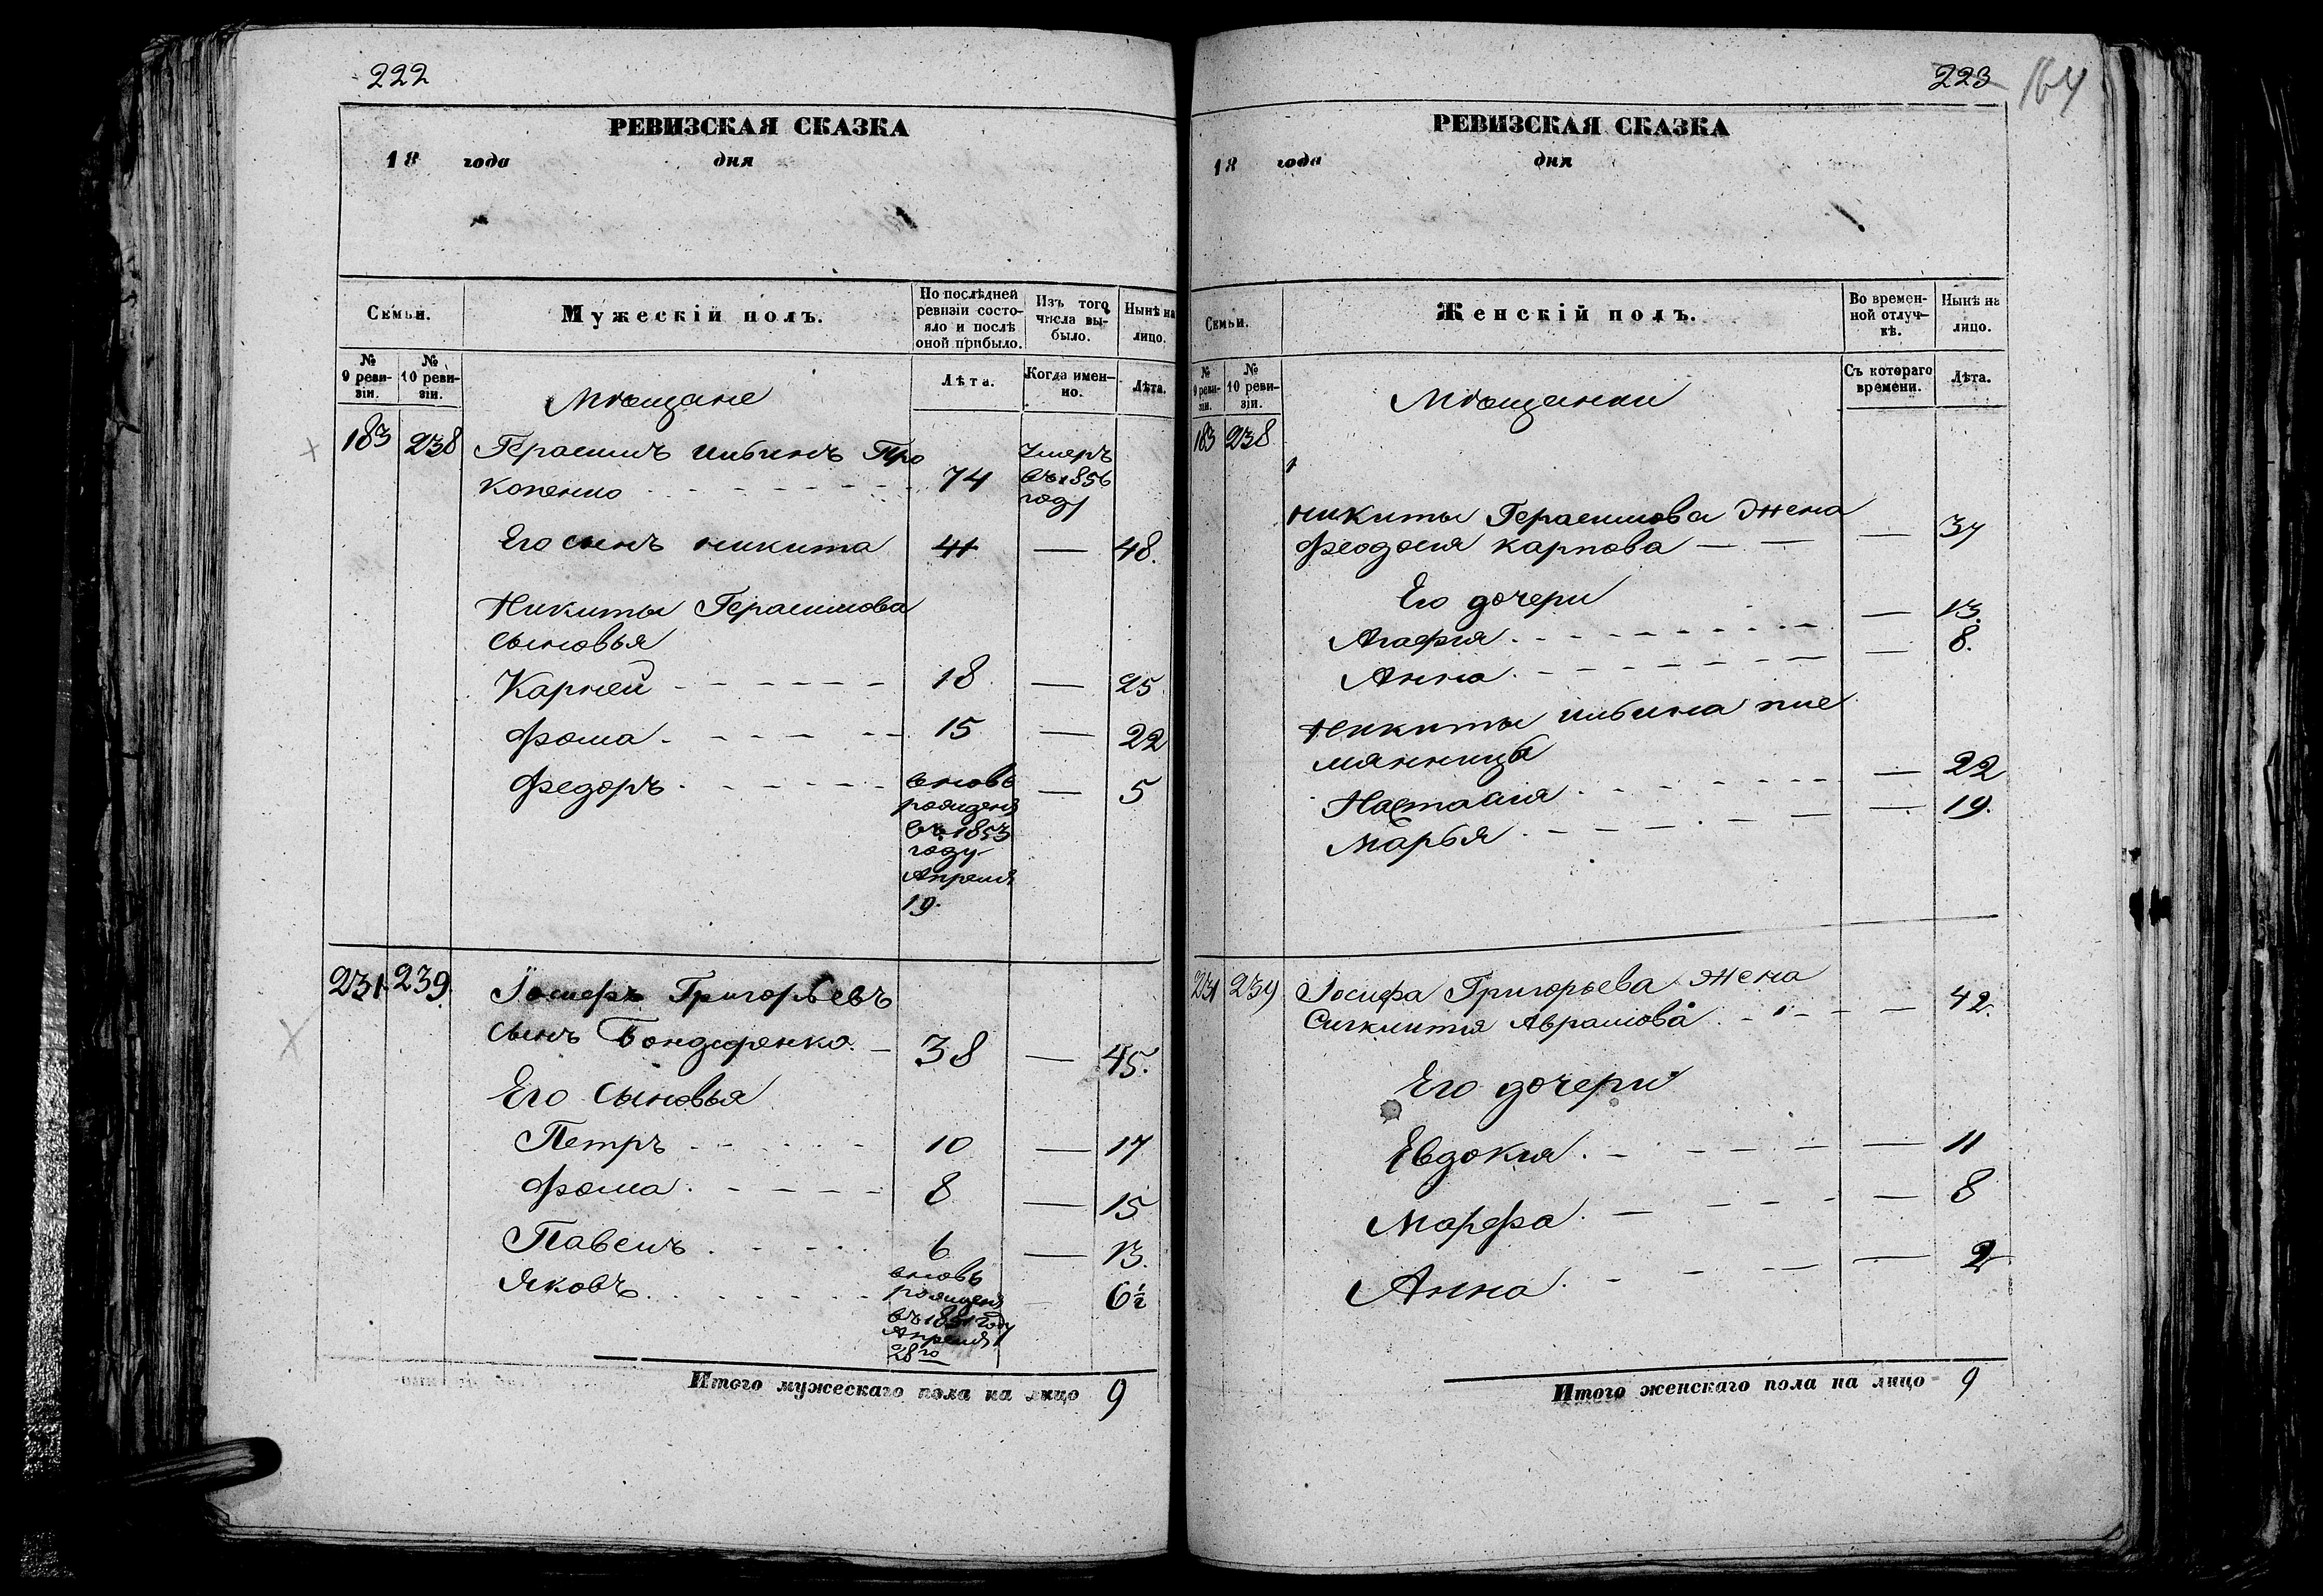 222
РЕВИЗСКАЯ СКАЗКА
18 года дня
Семьи.
Мужескій полъ.
По послѣдней ревизіи состояло и послѣ оной прибыло.
Изъ того числа выбыло.
Нынѣ на лицо.
№ 9 ревизіи.
№ 10 ревизіи.
Лѣта.
Когда именно.
Лѣта.
Мѣщане
183 238 Герасимъ Ильинъ Про
копенко 74 Умеръ въ 1856 году
Его сынъ Никита 41 — 48.
Никиты Герасимова
сыновья
Карней 18 — 25
Фома 15 — 22
Федоръ вновь рожденъ въ 1853 году Апреля 19. — 5
231 239. Іосифъ Григорьевъ
сынъ Бондаренко 38 — 45.
Его сыновья
Петръ 10 — 17
Фома 8 — 15
Павелъ 6 — 13.
Яковъ вновь рожденъ въ 1851 году Апреля 28го 6½
Итого мужескаго пола на лицо 9
223 164
РЕВИЗСКАЯ СКАЗКА
18 года дня
Семьи.
Женскій полъ.
Во временной отлучкѣ.
Нынѣ на лицо.
№ 9 ревизіи.
№ 10 ревизіи.
Съ котораго времени.
Лѣта.
Мѣщанки
183 238
Никиты Герасимова жена
Феодосія Карпова —
Его дочери
Агафія — 13.
Анна — 8.
Никиты Ильина пле
мянницы
Настасія — 22
Марья — 19.
231 239 Іосифа Григорьева жена
Аврамова — 42.
Его дочери
Евдокія — 11
Марфа — 8
Анна — 2
Итого женскаго пола на лицо 9